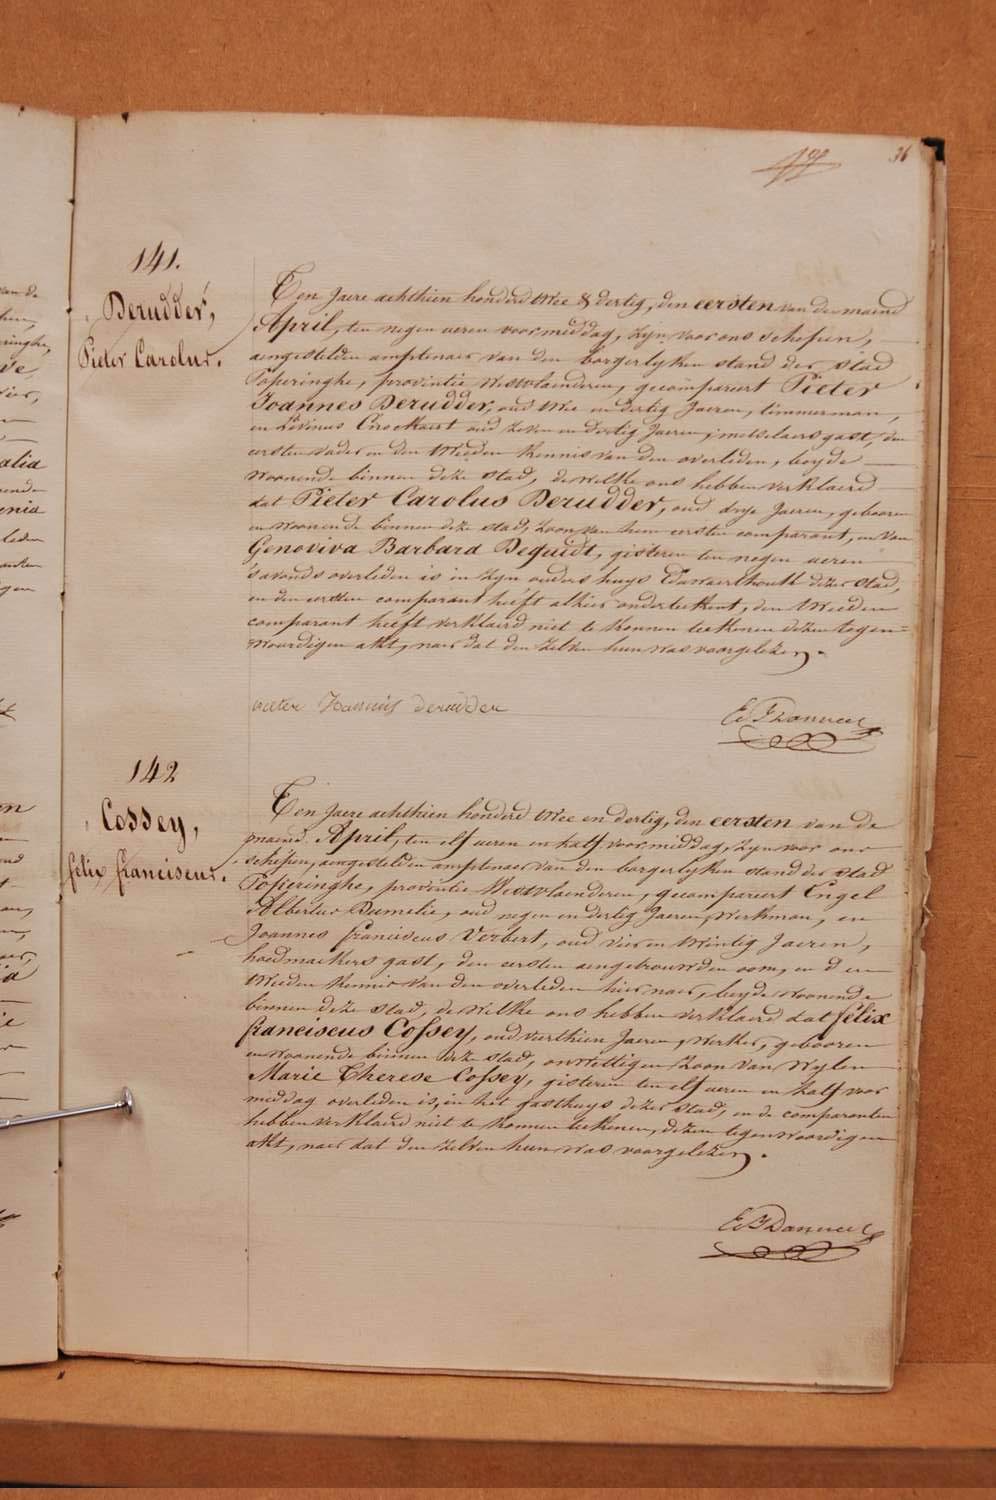 36
141.
Derudder,
Pieter Carolus.
Ten Jaere achthien honderd twee & dertig, den eersten van de maend
April, ten negen ueren voormiddag, zyn voor ons schepen,
aengestelden amptenaer van den borgerlyken stand der stad
Poperinghe, provintie Westvlaenderen, gecompareert Pieter
Joannes Derudder, oud twee en dertig Jaeren, timmerman,
en Livinus oud zeven en dertig Jaeren, metselaers gast, den
eersten vader en den tweeden kennis van den overleden, beyde
woonende binnen deze stad, dewelke ons hebben verklaerd
dat Pieter Carolus Derudder, oud drye Jaeren, gebooren
en woonende binnen deze stad, zoon van hem eersten comparant, en van
Genoviva Barbara Dequidt, gisteren ten negen ueren
s'avonds overleden is in zyn ouders huys dezer stad,
en den eersten comparant heéft alhier onderteekent, den tweeden
comparant heéft verklaerd niet te konnen teekenen dezen tegen=
woordigen akt, naer dat den zelven hun was voorgelezen.
derudder
142
Cossey,
felix franciscus.
Ten Jaere achthien honderd twee en dertig, den eersten van de
maend April, ten elf ueren en half voormiddag, zyn voor ons
schepen, aengestelden amptenaer van den borgerlyken stand der stad
Poperinghe, provintie Westvlaenderen, gecompareert Engel
Albertus Dumelie, oud negen en dertig Jaeren, werkman, en
Joannes franciscus Verbert, oud vier en twintig Jaeren,
hoedmaekers gast, den eersten aengetrouwden oom, en den
tweeden kennis van den overleden hier naer, beyde woonende
binnen deze stad, dewelke ons hebben verklaerd dat felix
franciscus Cossey, oud vierthien Jaeren, werker, gebooren
en woonende binnen deze stad, onwettigen zoon van wylen
Marie Therese Cossey, gisteren ten elf ueren en half voor
middag overleden is, in het gasthuys dezer stad, en de comparenten
hebben verklaerd niet te konnen teekenen, dezen tegenwoordigen
akt, naer dat den zelven hun was voorgelezen.